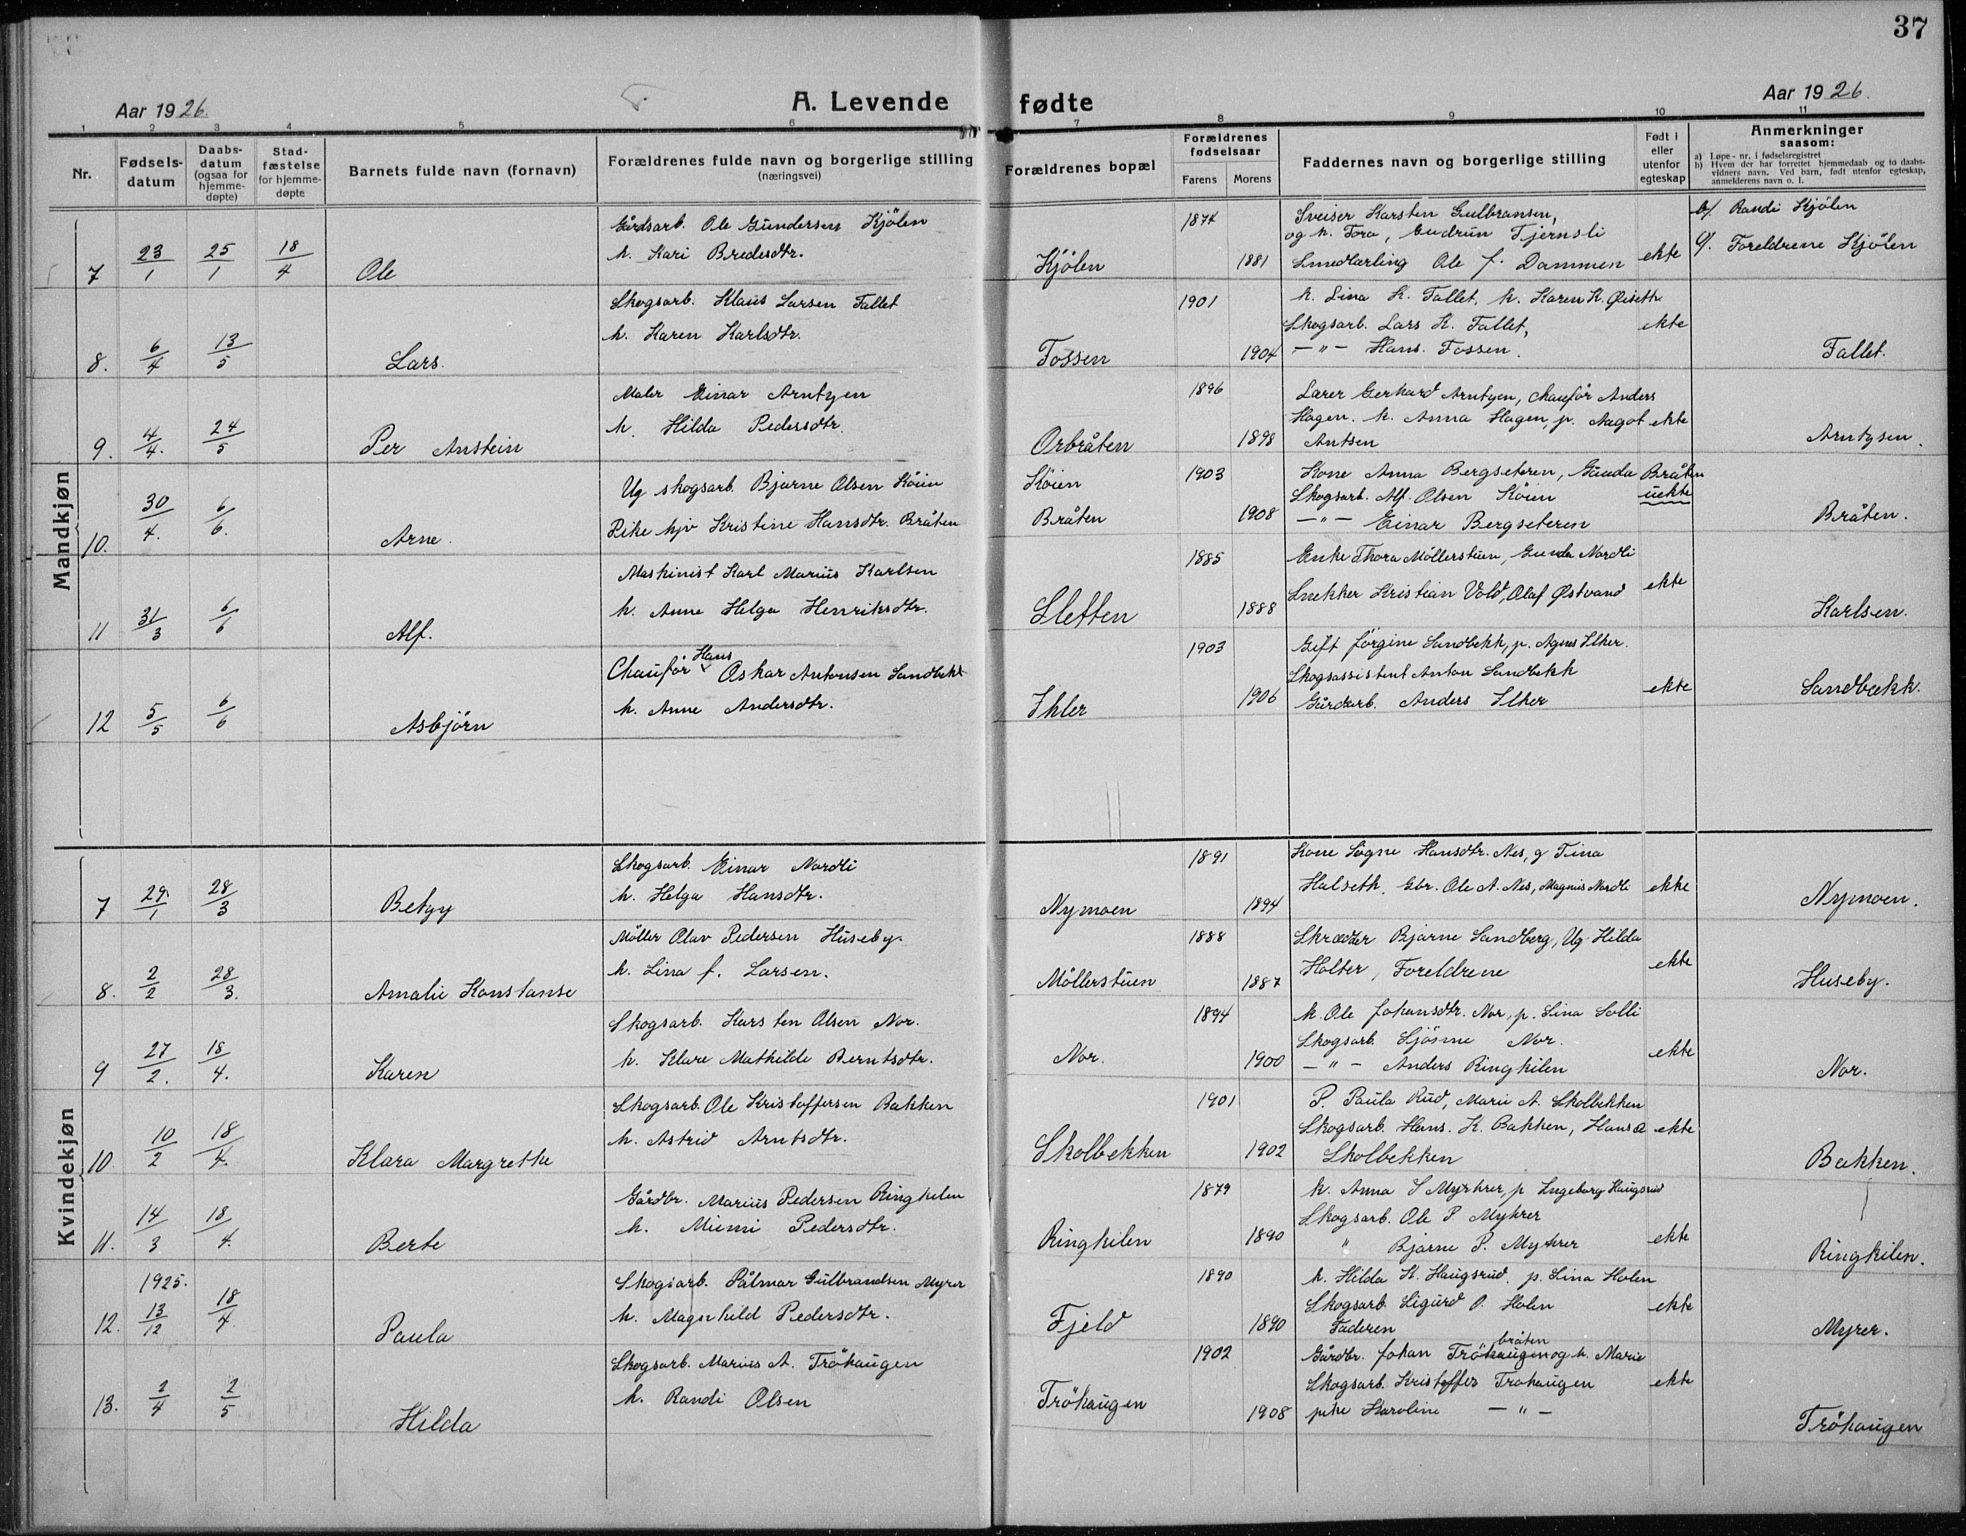 37
Aar 1926.
A. Levende fødte
Aar 1926.
1 2 3 4 5 6 7 8 9 10 11
Nr.
Fødsels-datum
Daabs-datum (ogsaa for hjemme-døpte)
Stad-fæstelse for hjemme-døpte
Barnets fulde navn (fornavn)
Forældrenes fulde navn og borgerlige stilling (næringsvei)
Forældrenes bopæl
Forældrenes fødselsaar
Farens Morens
Faddernes navn og borgerlige stilling
Født i eller utenfor egteskap
Anmerkninger saasom:
a) Løpe-nr. i fødselsregistret
b) Hvem der har forrettet hjemmedaab og to daabs-vidners navn. Ved barn, født utenfor egteskap, anmelderens navn o. l.
Mandkjøn
7 23/1 25/1 18/4 Ole
Gårdsarb. Ole Gundersen Kjölen
h. Kari Bredesdtr.
Kjölen 1874 1881
Sveiser Karsten Gulbransen,
og h. Tora, Gudrun Tjernsli
Smedlærling Ole f. Dammen
ekte
b/. Randi Kjölen
c/. Foreldrene Kjölen
8. 6/4 13/5 Lars.
Skogsarb. Klaus Larsen Fallet
h. Karen Karlsdtr.
Fossen 1901 1904
h. Lina K. Fallet, h. Karen K. Øiseth
Skogsarb. Lars K. Fallet,
— " — Hans. Fossen.
ekte
Fallet.
9. 4/4. 24/5 Per Anstein
Maler Einar Arntzen
h. Hilda Pedersdtr.
Orbråten 1896 1898
Lærer Gerhard Arntzen, chauför Anders
Hagen. h. Anna Hagen, p. Aagot
Antsen
ekte
Arntzsen.
10. 30/4. 6/6. Arne.
Ug skogsarb. Bjarne Olsen Köien
Pike hjv Kristine Hansdtr. Bråten
Köien
Bråten
1903 1908
Kone Anna Bergseteren, Gunda Bråten
Skogsarb. Alf. Olsen Köien
— " — Einar Bergseteren
uekte
Bråten.
11 31/3 6/6 Alf.
Maskinist Karl Marius Karlsen
h. Anne Helga Henriksdtr.
Sletten 1885 1888
Enke Thora Möllerstuen, Gunda Nordli
Snekker Kristian Vold, Olaf Østvand
ekte
Karlsen.
12 5/5 6/6 Asbjörn
Chauför Hans Oskar Antonsen Sandbekk
h. Anne Andersdtr.
Ihler 1903 1906
Gift Jörgine Sandbekk, p. Agnes Ilher.
Skogsassistent Anton Sandbekk
Gårdarb. Anders Ilher
ekte
Sandbækk.
Kvindekjøn
7 29/1 28/3 Betzy
Skogsarb. Einar Nordli
h. Helga Hansdtr.
Nymoen 1891 1894
Kone Sogne Hansdtr. Nes, g Tina
Halseth, Gbr. Ole A. Nes, Magnus Nordli
ekte
Nymoen.
8. 2/2 28/3. Amalie Konstanse
Möller Olav Pedersen Huseby.
h. Lina f. Larsen.
Möllerstuen 1888 1887
Skrædder Bjarne Sandberg, Ug. Hilda
Holter, Foreldrene
ekte
Huseby.
9 27/2. 18/4. Karen
Skogsarb. Karsten Olsen Nor.
h. Klara Mathilde Berntsdtr.
Nor. 1894 1900
h. Ole Johansdtr. Nor, p. Lina Solli
Skogsarb. Sjösme Nor.
— " — Anders Ringhilen
ekte
Nor.
10. 10/2 18/4. Klara Margrethe
Skogsarb. Ole Kristoffersen Bakken
h. Astrid Arntsdtr.
Skolbekken 1901 1902
P. Paula Rud, Marie A. Skolbekken
Skogsarb. Hans. K. Bakken, Hans A
Skolbekken
ekte
Bakken.
11. 14/3 18/4. Berte
Gårdbr. Marius Pedersen Ringhilen
h. Miemi Pedersdtr.
Ringhilen 1879 1890
h. Anna S Myhrer, p Ingeborg Haugsrud
Skogsarb. Ole P. Myhrer
" Bjarne P. Myhrer
ekte
Ringhilen.
12. 1925. 13/12 18/4 Paula
Skogsarb. Pålmar Gulbrandsen Myrer
h. Magnhild Pedersdtr.
Fjeld 1890 1890
h. Hilda K. Haugsrud. p. Lina Holen
Skogsarb. Sigurd O. Holen
Faderen
ekte
Myrer.
13. 2/4 2/5 Hilda
Skogsarb. Marius A. Tröhaugen
h. Randi Olsen
Tröhaugen 1902 1908
Gårdbr. Johan Tröhaugen bråten og h. Marie
Skogsarb. Kristoffer Tröhaugen
pike Karoline — " —
ekte
Tröhaugen